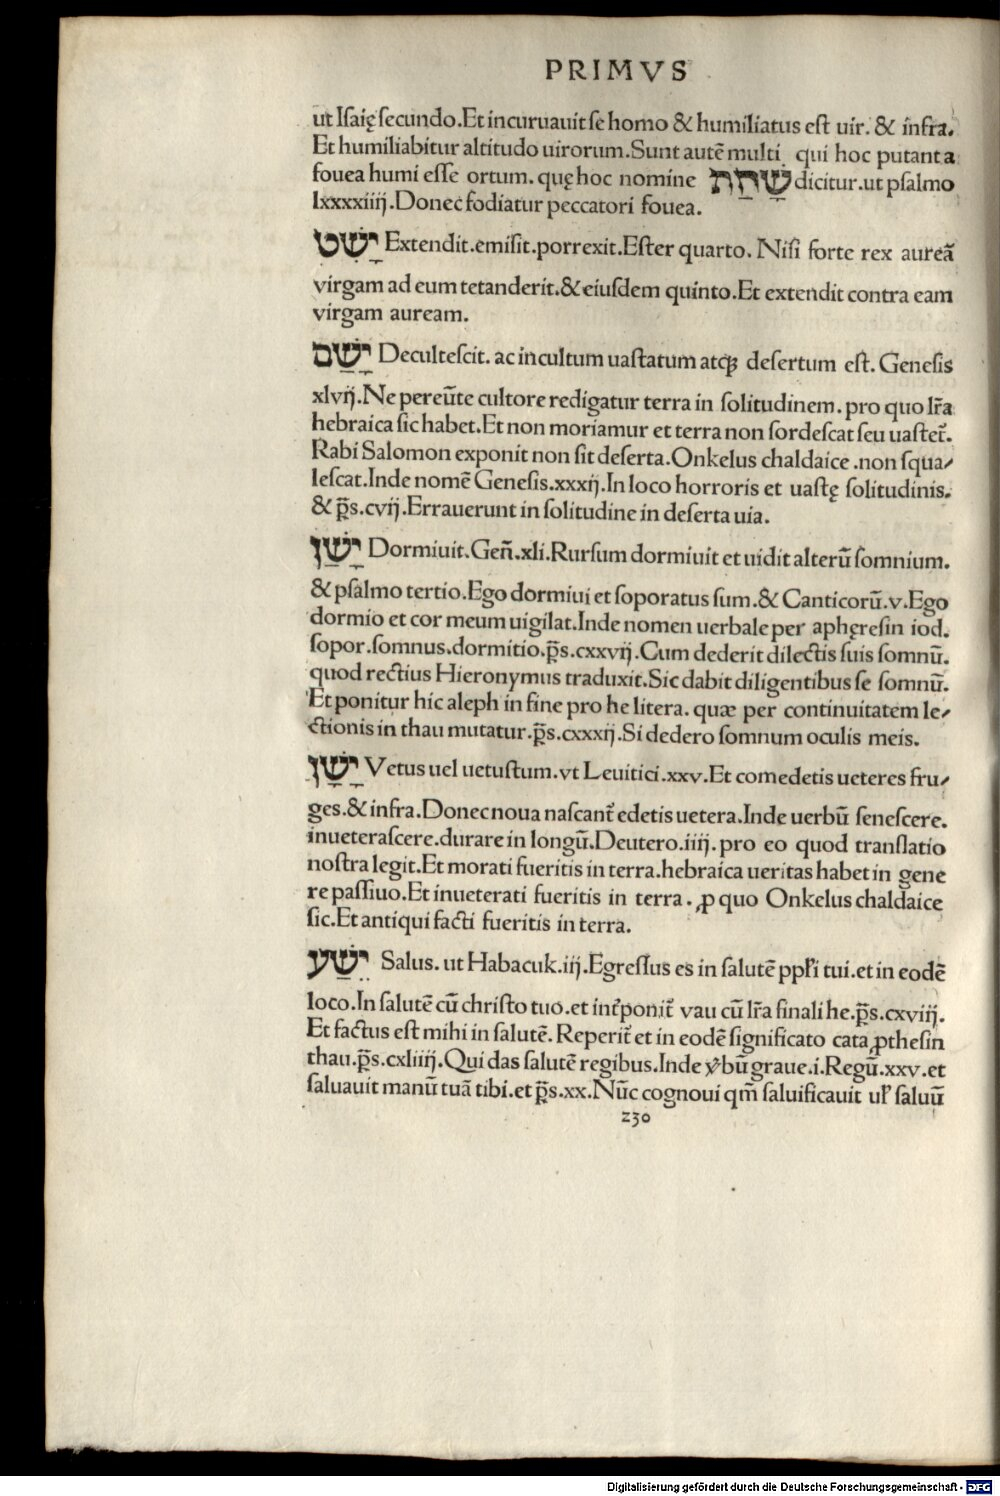 PRIMVS
ut Iſaię ſecundo.Et incuruauit ſe homo & humiliatus eſt uir. & infra.
Et humiliabitur altitudo uirorum.Sunt autē multi qui hoc putant a
fouea humi eſſe ortum. quę hoc nomine שָׁחַת dicitur.ut pſalmo
lxxxxiiij.Donec fodiatur peccatori fouea.
יָשַׁט Extendit.emiſit.porrexit.Eſter quarto. Niſi forte rex aureā
virgam ad eum tetanderit.& eiuſdem quinto.Et extendit contra eam
virgam auream.
יָשַׁם Deculteſcit. ac incultum uaſtatum atqꝫ deſertum eſt. Geneſis
xlvij.Ne pereūte cultore redigatur terra in ſolitudinem. pro quo lr̄a
hebraica ſic habet.Et non moriamur et terra non ſordeſcat ſeu uaſtet̄.
Rabi Salomon exponit non ſit deſerta.Onkelus chaldaice .non ſqua⸗
leſcat.Inde nomē Geneſis.xxxij.In loco horroris et uaſtę ſolitudinis.
& p̄s.cvij.Errauerunt in ſolitudine in deſerta uia.
יָשַׁן Dormiuit.Geñ.xli.Rurſum dormiuit et uidit alterū ſomnium.
& pſalmo tertio.Ego dormiui et ſoporatus ſum.& Canticorū.v.Ego
dormio et cor meum uigilat.Inde nomen uerbale per aphęreſin iod.
ſopor.ſomnus.dormitio.p̄s.cxxvij.Cum dederit dilectis ſuis ſomnū.
quod rectius Hieronymus traduxit.Sic dabit diligentibus ſe ſomnū.
Et ponitur hic aleph in fine pro he litera. quæ per continuitatem le⸗
ctionis in thau mutatur.p̄s.cxxxij.Si dedero ſomnum oculis meis.
יָשָׁן Vetus uel uetuſtum.vt Leuitici.xxv.Et comedetis ueteres fru⸗
ges.& infra.Donec noua naſcant̄ edetis uetera.Inde uerbū ſeneſcere.
inueteraſcere.durare in longū.Deutero.iiij.pro eo quod tranſlatio
noſtra legit.Et morati fueritis in terra.hebraica ueritas habet in gene
re paſſiuo.Et inueterati fueritis in terra . ꝓ quo Onkelus chaldaice
ſic.Et antiqui facti fueritis in terra.
יֵשַׁע Salus. ut Habacuk.iij.Egreſſus es in ſalutē ppl̄i tui.et in eodē
loco.In ſalutē cū chriſto tuo.et int̄ponit̄ vau cū lr̄a finali he.p̄s.cxviij.
Et factus eſt mihi in ſalutē. Reperit̄ et in eodē ſignificato cata ꝓtheſin
thau.p̄s.cxliiij.Qui das ſalutē regibus.Inde v̄bū graue.i.Regū.xxv.et
ſaluauit manū tuā tibi.et p̄s.xx.Nūc cognoui qm̄ ſaluificauit ul̄ ſaluū
230
Digitalisierung gefördert durch die Deutsche Forschungsgemeinschaft - DFG